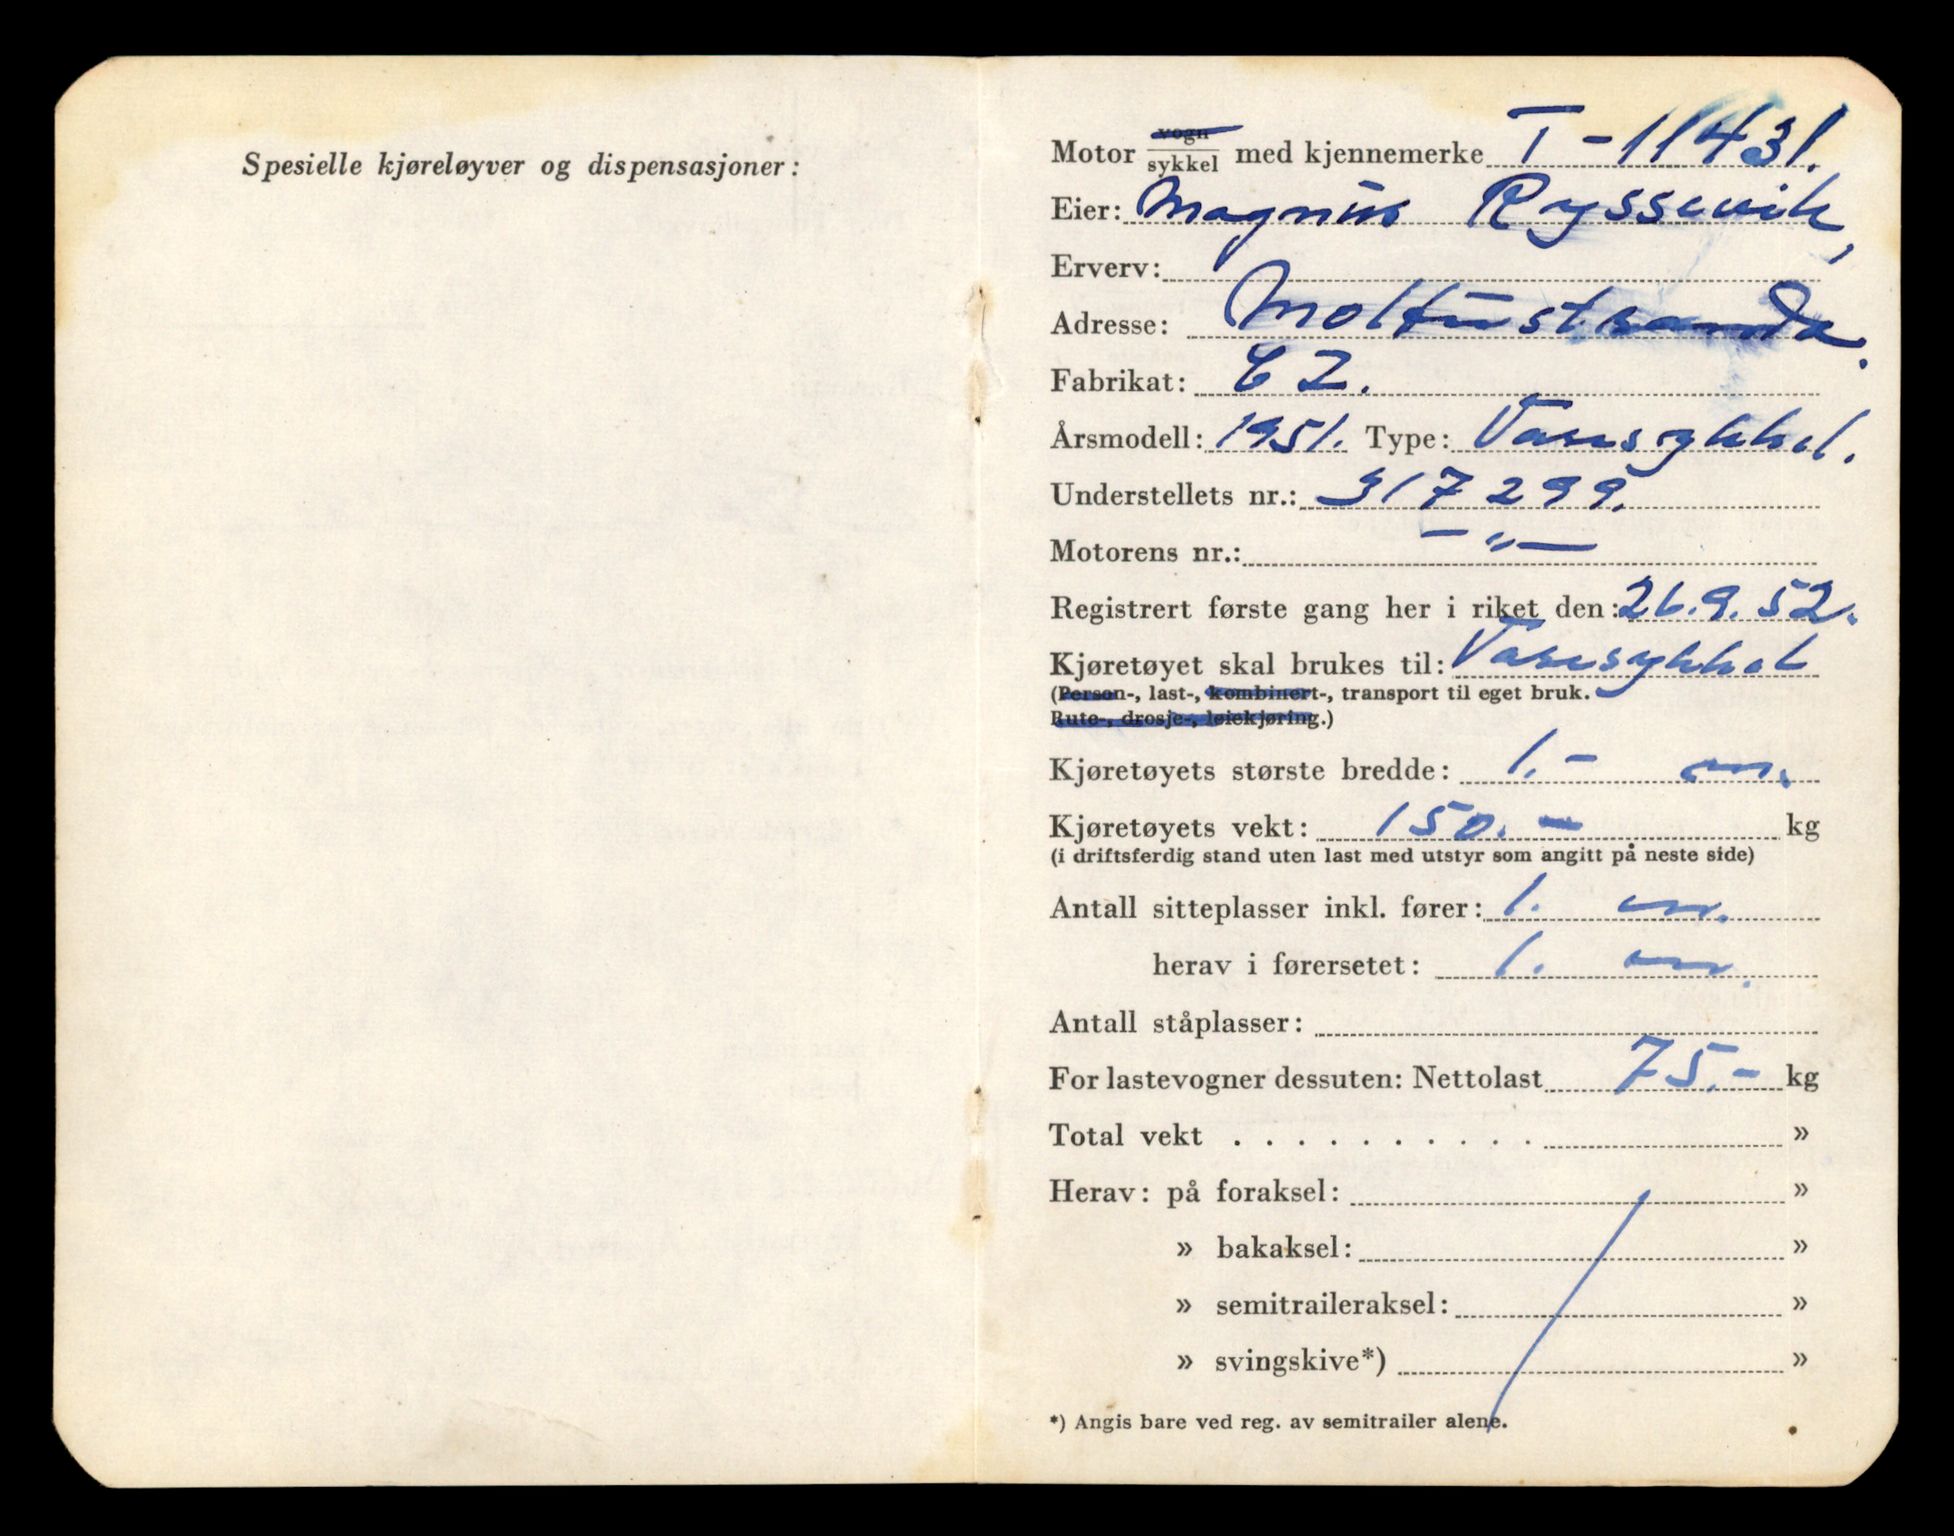 Spesielle kjøreløyver og dispensasjoner:
Motor vogn/sykkel med kjennemerke T-11431.
Eier: Magnus Ryssevik,
Erverv:
Adresse: Moltustranda.
Fabrikat: CZ.
Årsmodell: 1951. Type: Varesykkel.
Understellets nr.: 317299.
Motorens nr.: — " —
Registrert første gang her i riket den: 26.9.52.
Kjøretøyet skal brukes til: Varesykkel
(Person-, last-, kombinert-, transport til eget bruk.
Rute-, drosje-, leiekjøring.)
Kjøretøyets største bredde: 1.- m.
Kjøretøyets vekt: 150.- kg
(i driftsferdig stand uten last med utstyr som angitt på neste side)
Antall sitteplasser inkl. fører: 1.
herav i førersetet: 1.
Antall ståplasser:
For lastevogner dessuten: Nettolast 75.- kg
Total vekt . . . . . . . . . . »
Herav: på foraksel: »
» bakaksel: »
» semitraileraksel: »
» svingskive*) »
*) Angis bare ved reg. av semitrailer alene.